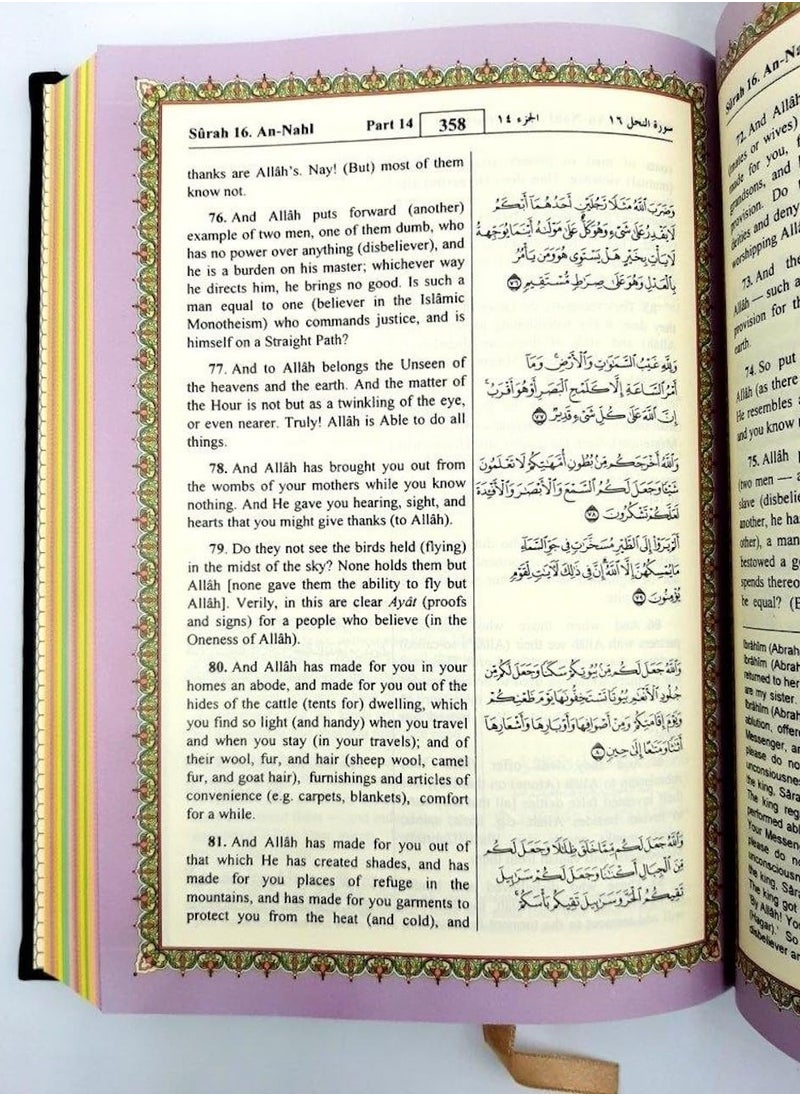 Sûrah 16. An-Nahl Part 14 358 الجزء ١٤ سورة النحل ١٦
thanks are Allâh's. Nay! (But) most of them
know not.
76. And Allâh puts forward (another)
example of two men, one of them dumb, who
has no power over anything (disbeliever), and
he is a burden on his master; whichever way
he directs him, he brings no good. Is such a
man equal to one (believer in the Islâmic
Monotheism) who commands justice, and is
himself on a Straight Path?
77. And to Allâh belongs the Unseen of
the heavens and the earth. And the matter of
the Hour is not but as a twinkling of the eye,
or even nearer. Truly! Allâh is Able to do all
things.
78. And Allâh has brought you out from
the wombs of your mothers while you know
nothing. And He gave you hearing, sight, and
hearts that you might give thanks (to Allâh).
79. Do they not see the birds held (flying)
in the midst of the sky? None holds them but
Allâh [none gave them the ability to fly but
Allâh]. Verily, in this are clear Ayât (proofs
and signs) for a people who believe (in the
Oneness of Allâh).
80. And Allâh has made for you in your
homes an abode, and made for you out of the
hides of the cattle (tents for) dwelling, which
you find so light (and handy) when you travel
and when you stay (in your travels); and of
their wool, fur, and hair (sheep wool, camel
fur, and goat hair), furnishings and articles of
convenience (e.g. carpets, blankets), comfort
for a while.
81. And Allâh has made for you out of
that which He has created shades, and has
made for you places of refuge in the
mountains, and has made for you garments to
protect you from the heat (and cold), and
وَضَرَبَ ٱللَّهُ مَثَلًا رَّجُلَيْنِ أَحَدُهُمَآ أَبْكَمُ
لَا يَقْدِرُ عَلَىٰ شَىْءٍ وَهُوَ كَلٌّ عَلَىٰ مَوْلَىٰهُ أَيْنَمَا يُوَجِّههُّ
لَا يَأْتِ بِخَيْرٍ هَلْ يَسْتَوِى هُوَ وَمَن يَأْمُرُ
بِٱلْعَدْلِ وَهُوَ عَلَىٰ صِرَٰطٍ مُّسْتَقِيمٍ ٧٦
وَلِلَّهِ غَيْبُ ٱلسَّمَٰوَٰتِ وَٱلْأَرْضِ وَمَآ
أَمْرُ ٱلسَّاعَةِ إِلَّا كَلَمْحِ ٱلْبَصَرِ أَوْ هُوَ أَقْرَبُ
إِنَّ ٱللَّهَ عَلَىٰ كُلِّ شَىْءٍ قَدِيرٌ ٧٧
وَٱللَّهُ أَخْرَجَكُم مِّنۢ بُطُونِ أُمَّهَٰتِكُمْ لَا تَعْلَمُونَ
شَيْـًٔا وَجَعَلَ لَكُمُ ٱلسَّمْعَ وَٱلْأَبْصَٰرَ وَٱلْأَفْـِٔدَةَ
لَعَلَّكُمْ تَشْكُرُونَ ٧٨
أَلَمْ يَرَوْا۟ إِلَى ٱلطَّيْرِ مُسَخَّرَٰتٍ فِى جَوِّ ٱلسَّمَآءِ
مَا يُمْسِكُهُنَّ إِلَّا ٱللَّهُ إِنَّ فِى ذَٰلِكَ لَـَٔايَٰتٍ لِّقَوْمٍ
يُؤْمِنُونَ ٧٩
وَٱللَّهُ جَعَلَ لَكُم مِّنۢ بُيُوتِكُمْ سَكَنًا وَجَعَلَ لَكُم مِّن
جُلُودِ ٱلْأَنْعَٰمِ بُيُوتًا تَسْتَخِفُّونَهَا يَوْمَ ظَعْنِكُمْ
وَيَوْمَ إِقَامَتِكُمْ وَمِنْ أَصْوَافِهَا وَأَوْبَارِهَا وَأَشْعَارِهَآ
أَثَٰثًا وَمَتَٰعًا إِلَىٰ حِينٍ ٨٠
وَٱللَّهُ جَعَلَ لَكُم مِّمَّا خَلَقَ ظِلَٰلًا وَجَعَلَ لَكُم
مِّنَ ٱلْجِبَالِ أَكْنَٰنًا وَجَعَلَ لَكُمْ سَرَٰبِيلَ
تَقِيكُمُ ٱلْحَرَّ وَسَرَٰبِيلَ تَقِيكُم بَأْسَكُمْ
Sûrah 16. An-Na
72. And Allâh
(mates or wives)
made for you, f
grandsons, and
provision. Do
deities and deny
worshipping Allâ
73. And the
Allâh — such a
provision for th
earth.
74. So put
Allâh (as there
He resembles
and you know
75. Allâh
(two men — a
slave (disbelie
another, he ha
other), a man
bestowed a g
spends thereo
be equal? (
Ibrâhîm (Abrah
Ibrâhîm (Abrah
returned to her
are my sister.
Ibrâhîm (Abrah
ablution, offere
Messenger, an
please do no
unconsciousnes
the king, Sâra
The king reg
performed abl
Your Messen
please do n
unconsciousn
the king, Sâr
The king got
'By Allâh! Yo
(Hagar).' So
disbeliever an